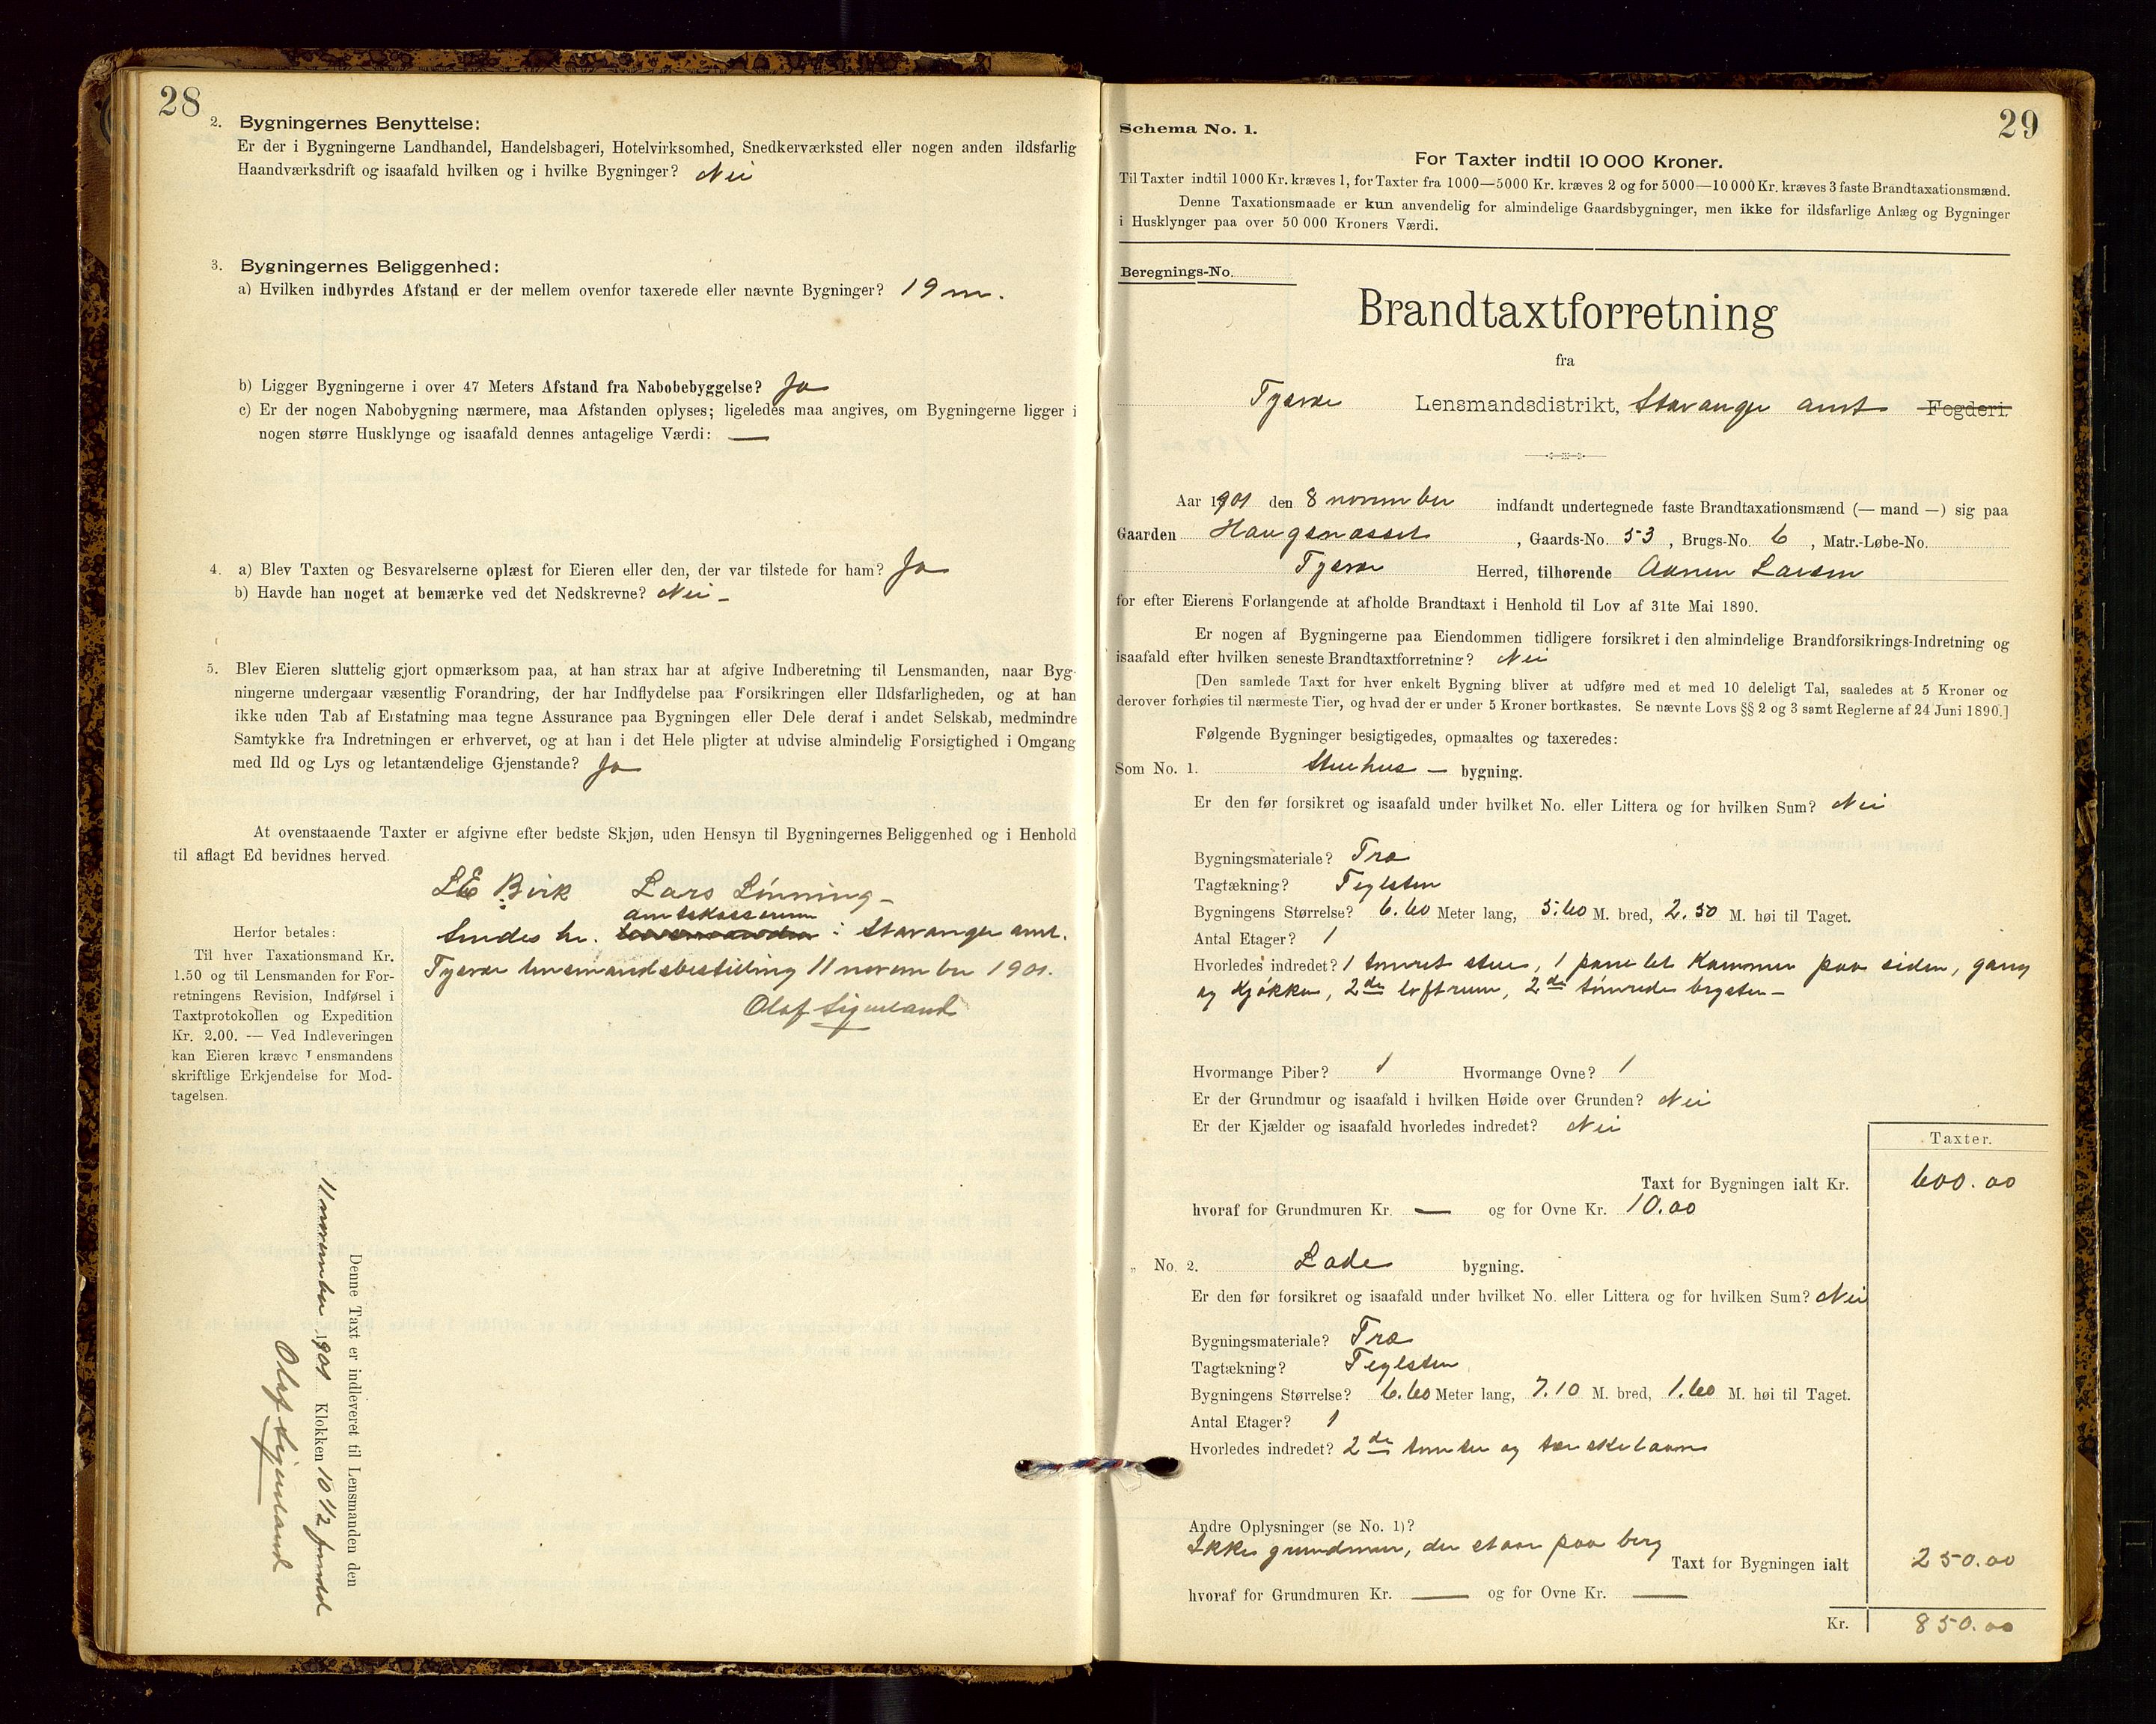 28
2. Bygningernes Benyttelse:
Er der i Bygningerne Landhandel, Handelsbageri, Hotelvirksomhed, Snedkerværksted eller nogen anden ildsfarlig
Haandværksdrift og isaafald hvilken og i hvilke Bygninger? Nei
3. Bygningernes Beliggenhed:
a) Hvilken indbyrdes Afstand er der mellem ovenfor taxerede eller nævnte Bygninger? 19 m.
b) Ligger Bygningerne i over 47 Meters Afstand fra Nabobebyggelse? Ja
c) Er der nogen Nabobygning nærmere, maa Afstanden oplyses; ligeledes maa angives, om Bygningerne ligger i
nogen større Husklynge og isaafald dennes antagelige Værdi: —
4. a) Blev Taxten og Besvarelserne oplæst for Eieren eller den, der var tilstede for ham? Ja
b) Havde han noget at bemærke ved det Nedskrevne? Nei –
5. Blev Eieren sluttelig gjort opmærksom paa, at han strax har at afgive Indberetning til Lensmanden, naar Byg-
ningerne undergaar væsentlig Forandring, der har Indflydelse paa Forsikringen eller Ildsfarligheden, og at han
ikke uden Tab af Erstatning maa tegne Assurance paa Bygningen eller Dele deraf i andet Selskab, medmindre
Samtykke fra Indretningen er erhvervet, og at han i det Hele pligter at udvise almindelig Forsigtighed i Omgang
med Ild og Lys og letantændelige Gjenstande? Ja
At ovenstaaende Taxter er afgivne efter bedste Skjøn, uden Hensyn til Bygningernes Beliggenhed og i Henhold
til aflagt Ed bevidnes herved.
LE Birk Lars Lönning –
amtskasseren
Sendes hr. i Stavanger amt.
Tysvær lensmandsbestilling 11 november 1901.
Olaf
Herfor betales:
Til hver Taxationsmand Kr.
1.50 og til Lensmanden for For-
retningens Revision, Indførsel i
Taxtprotokollen og Expedition
Kr. 2.00. — Ved Indleveringen
kan Eieren kræve Lensmandens
skriftlige Erkjendelse for Mod-
tagelsen.
Denne Taxt er indleveret til Lensmanden den
11 november 1901 Klokken 10 1/2 formd
Olaf
29
Schema No. 1.
For Taxter indtil 10 000 Kroner.
Til Taxter indtil 1000 Kr. kræves 1, for Taxter fra 1000—5000 Kr. kræves 2 og for 5000—10 000 Kr. kræves 3 faste Brandtaxationsmænd.
Denne Taxationsmaade er kun anvendelig for almindelige Gaardsbygninger, men ikke for ildsfarlige Anlæg og Bygninger
i Husklynger paa over 50 000 Kroners Værdi.
Beregnings-No.
Brandtaxtforretning
fra
Tysvær Lensmandsdistrikt, Stavanger amt Fogderi.
Aar 1901 den 8 november indfandt undertegnede faste Brandtaxationsmænd (— mand —) sig paa
Gaarden Haugsnæsset, Gaards-No. 53, Brugs-No. 6, Matr.-Løbe-No.
Tysvær Herred, tilhørende Larsen
for efter Eierens Forlangende at afholde Brandtaxt i Henhold til Lov af 31te Mai 1890.
Er nogen af Bygningerne paa Eiendommen tidligere forsikret i den almindelige Brandforsikrings-Indretning og
isaafald efter hvilken seneste Brandtaxtforretning? Nei
[Den samlede Taxt for hver enkelt Bygning bliver at udføre med et med 10 deleligt Tal, saaledes at 5 Kroner og
derover forhøies til nærmeste Tier, og hvad der er under 5 Kroner bortkastes. Se nævnte Lovs §§ 2 og 3 samt Reglerne af 24 Juni 1890.]
Følgende Bygninger besigtigedes, opmaaltes og taxeredes:
Som No. 1. Stuehus – bygning.
Er den før forsikret og isaafald under hvilket No. eller Littera og for hvilken Sum? Nei
Bygningsmateriale? Træ
Tagtækning? Teglsten
Bygningens Størrelse? 6.60 Meter lang, 5.60 M. bred, 2.50 M. høi til Taget.
Antal Etager? 1
Hvorledes indredet? 1 tømret stue, 1 panelet Kammer paa siden, gang
og Kjøkken, 2de loftrum, 2de tømrede –
Hvormange Piber? 1 Hvormange Ovne? 1
Er der Grundmur og isaafald i hvilken Høide over Grunden? Nei
Er der Kjælder og isaafald hvorledes indredet? Nei
Taxter.
Taxt for Bygningen ialt Kr. 600.00
hvoraf for Grundmuren Kr. — og for Ovne Kr. 10.00
„ No. 2. Lade bygning.
Er den før forsikret og isaafald under hvilket No. eller Littera og for hvilken Sum? Nei
Bygningsmateriale? Træ
Tagtækning? Teglsten
Bygningens Størrelse? 6.60 Meter lang, 7.10 M. bred, 1.60 M. høi til Taget.
Antal Etager? 1
Hvorledes indredet? 2de og
Andre Oplysninger (se No. 1)?
Ikke grundmur, der staar paa berg
Taxt for Bygningen ialt 250.00
hvoraf for Grundmuren Kr. — og for Ovne Kr. —
Kr. 850.00